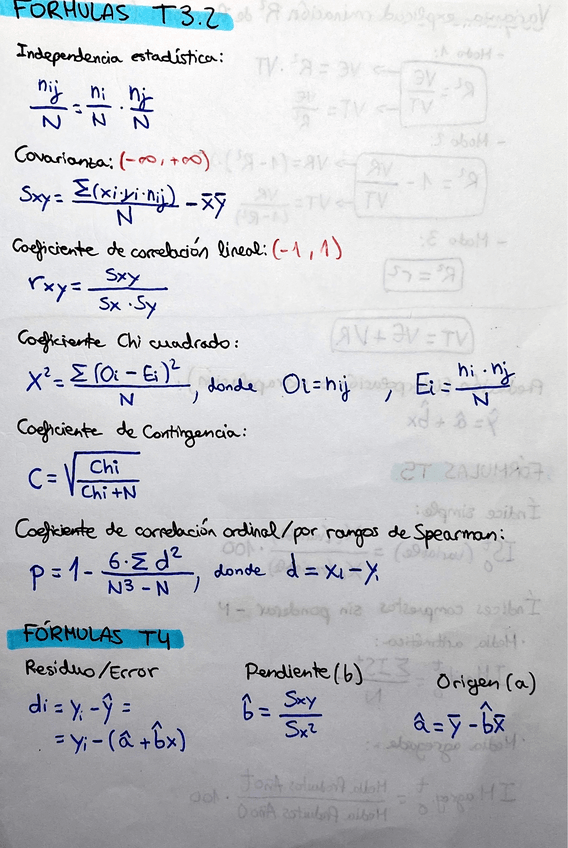 FÓRMULAS T3.2
Independencia estadística:
nij/N = ni/N · nj/N
Covarianza: (-∞, +∞)
Sxy = Σ(xi·yi·nij)/N - x̄ȳ
Coeficiente de correlación lineal: (-1, 1)
rxy = Sxy/(Sx · Sy)
Coeficiente Chi cuadrado:
X² = Σ(Oi - Ei)²/N, donde Oi = nij, Ei = ni · nj/N
Coeficiente de Contingencia:
C = √(Chi/(Chi+N))
Coeficiente de correlación ordinal/por rangos de Spearman:
p = 1 - 6·Σ d²/(N³ - N), donde d = xi - yi
FÓRMULAS T4
Residuo/Error Pendiente (b) Origen (a)
di = yi - ŷ = b̂ = Sxy/Sx² â = ȳ - b̂x̄
= yi - (â + b̂x)